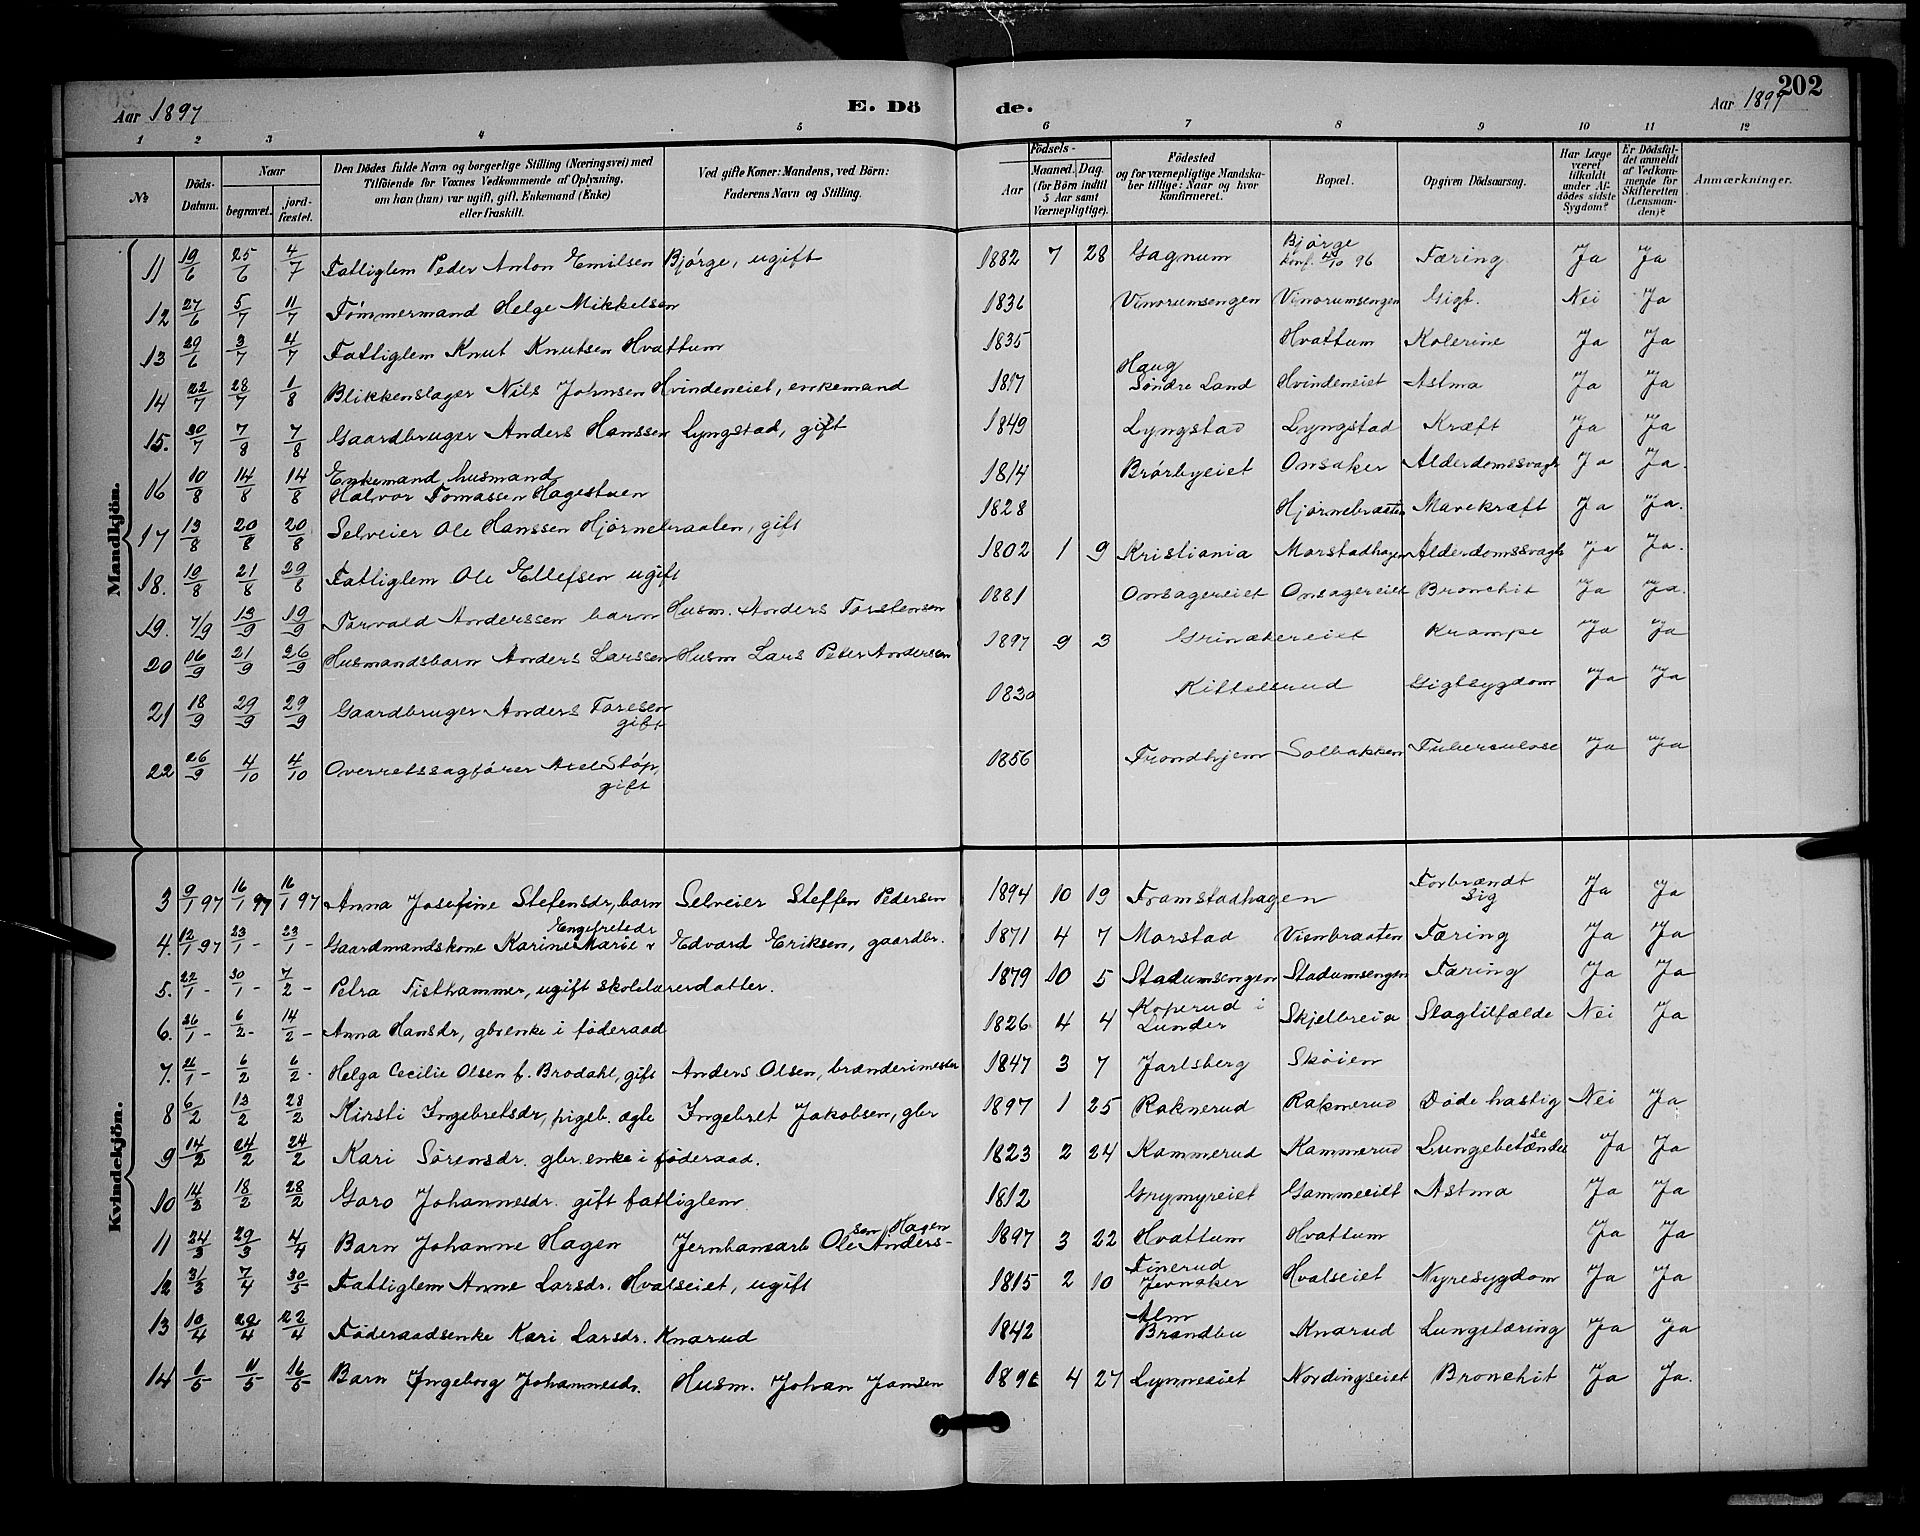 202
Aar 1897 E. Dö de. Aar 1897
1 2 3 4 5 6 7 8 9 10 11 12
№ Döds-Datum. Naar begravet. jord-fæstet. Den Dödes fulde Navn og borgerlige Stilling (Næringsvei) med Tilföiende for Voxnes Vedkommende af Oplysning, om han (hun) var ugift, gift, Enkemand (Enke) eller fraskilt. Ved gifte Koner: Mandens, ved Börn: Faderens Navn og Stilling. Födsels- Aar Maaned. Dag. (for Börn indtil 5 Aar samt Værnepligtige). Födested og for værnepligtige Mandska-ber tillige: Naar og hvor konfirmeret. Bopæl. Opgiven Dödsaarsag. Har Læge været tilkaldt under Af-dödes sidste Sygdom? Er Dödsfal-det anmeldt af Vedkom-mende for Skifteretten (Lensman-den)? Anmærkninger.
Mandkjön.
11 19/6 25/6 4/7 Fattiglem Peder Anton Emilsen Bjørge, ugift 1882 7 28 Gagnum Bjørge konf. 96 Tæring Ja Ja
12 27/6 5/7 11/7 Tømmermand Helge Mikkelsen 1836 Vinorumsengen Vinorumsengen Gigt. Nei Ja
13 29/6 3/7 4/7 Fattiglem Knut Knutsen Hvattum 1835 Hvattum Kolerine Ja Ja
14 22/7 28/7 1/8 Blikkenslager Nils Johnsen Hvindeneiet, enkemand 1817 Haug Søndre Land Hvindeneiet Astma Ja Ja
15. 30/7 7/8 7/8 Gaardbruger Anders Hanssen Lyngstad, gift 1849 Lyngstad Lyngstad Kræft Ja Ja
16 10/8 14/8 14/8 Enkemand, husmand Halvor Tomassen Hagestuen 1814 Brørbyeiet Onsaker Alderdomssvagh Ja Ja.
17 13/8 20/8 20/8 Selveier Ole Hanssen Hjørnebraaten, gift 1828 Hjørnebraaten Mavekræft Ja Ja.
18. 19/8 21/8 29/8 Fattiglem Ole Ellefsen ugift 1802 1 9 Kristiania Morstadhagen Alderdomssvagh Ja Ja.
19. 7/9 13/9 19/9 Torvald Anderssen barn Husm. Anders Torstensen 1881 Onsagereiet Onsagereiet Bronchit Ja Ja.
20 16/9 21/9 26/9 Husmandsbarn Anders Larssen Husm Lars Peter Andersen 1897 9 3 Grinakereiet Krampe Ja Ja
21 18/9 29/9 29/9 Gaardbruger Anders Toresen gift 1830 Kittelsrud Gigtsygdom Ja Ja
22 26/9 4/10 4/10 Overretssagfører Axel Støp, gift 1856 Trondhjem Solbakken Tuberculose Ja Ja
Kvindekjön.
3 9/1 97 16/1 97 16/1 97 Anna Josefine Stefensdr, barn Selveier Steffen Pedersen 1894 10 19 Framstadhagen Forbrændt sig Ja Ja
4. 12/1 97 23/1 - 23/1 - Gaardmandskone Karine Marie Engebretsdr Edvard Eriksen, gaardbr. 1871 4 7 Morstad Vienbraaten Tæring Ja Ja
5. 22/1 - 30/1 - 7/2 - Petra Tisthammer, ugift skolelærerdatter. 1879 10 5 Stadumsengen Stadumsengen Tæring Ja Ja
6. 26/1 - 6/2 - 14/2 - Anna Hansdr, gbr.enke i føderaad 1826 4 4 Koperud i Lunder Skjelbreia Slagtilfælde Nei Ja
7. 26/1 - 6/2 6/2 - Helga Cecilie Olsen f. Brodahl, gift Anders Olsen, brænderimester 1847 3 7 Jarlsberg Skøien
8 6/2 13/2 28/2 Kirsti Ingebretsdr, pigeb. ægte Ingebret Jakobsen, gbr 1897 1 25 Raknerud Raknerud Døde hastig Nei Ja
9 14/2 24/2 24/2 Kari Sørensdr. gbr.enke i føderaad. 1823 2 24 Kammerud Kammerud Lungebetændelse Ja Ja
10 14/3 18/2 28/2 Goro Johannesdr. gift fattiglem 1812 Grymyreiet Gammeeiet Astma Ja Ja
11 24/3 29/3 4/4 Barn Johanne Hagen Jernbanearb Ole Anders-sen Hagen 1897 3 22 Hvattum Hvattum Ja Ja
12 31/3 7/4 30/5 Fattiglem Anne Larsdr. Hvalseiet, ugift 1815 2 10 Finerud Jevnaker Hvalseiet Nyresygdom Ja Ja
13 10/4 22/4 Føderaadsenke Kari Larsdr. Knarud 1842 Alm Brandbu Knarud Lungetæring Ja Ja
14 1/5 11/5 16/5 Barn Ingeborg Johannesdr. Husm. Johan Jansen 1896 4 27 Lynneeiet Nordingseiet Bronchit Ja Ja.